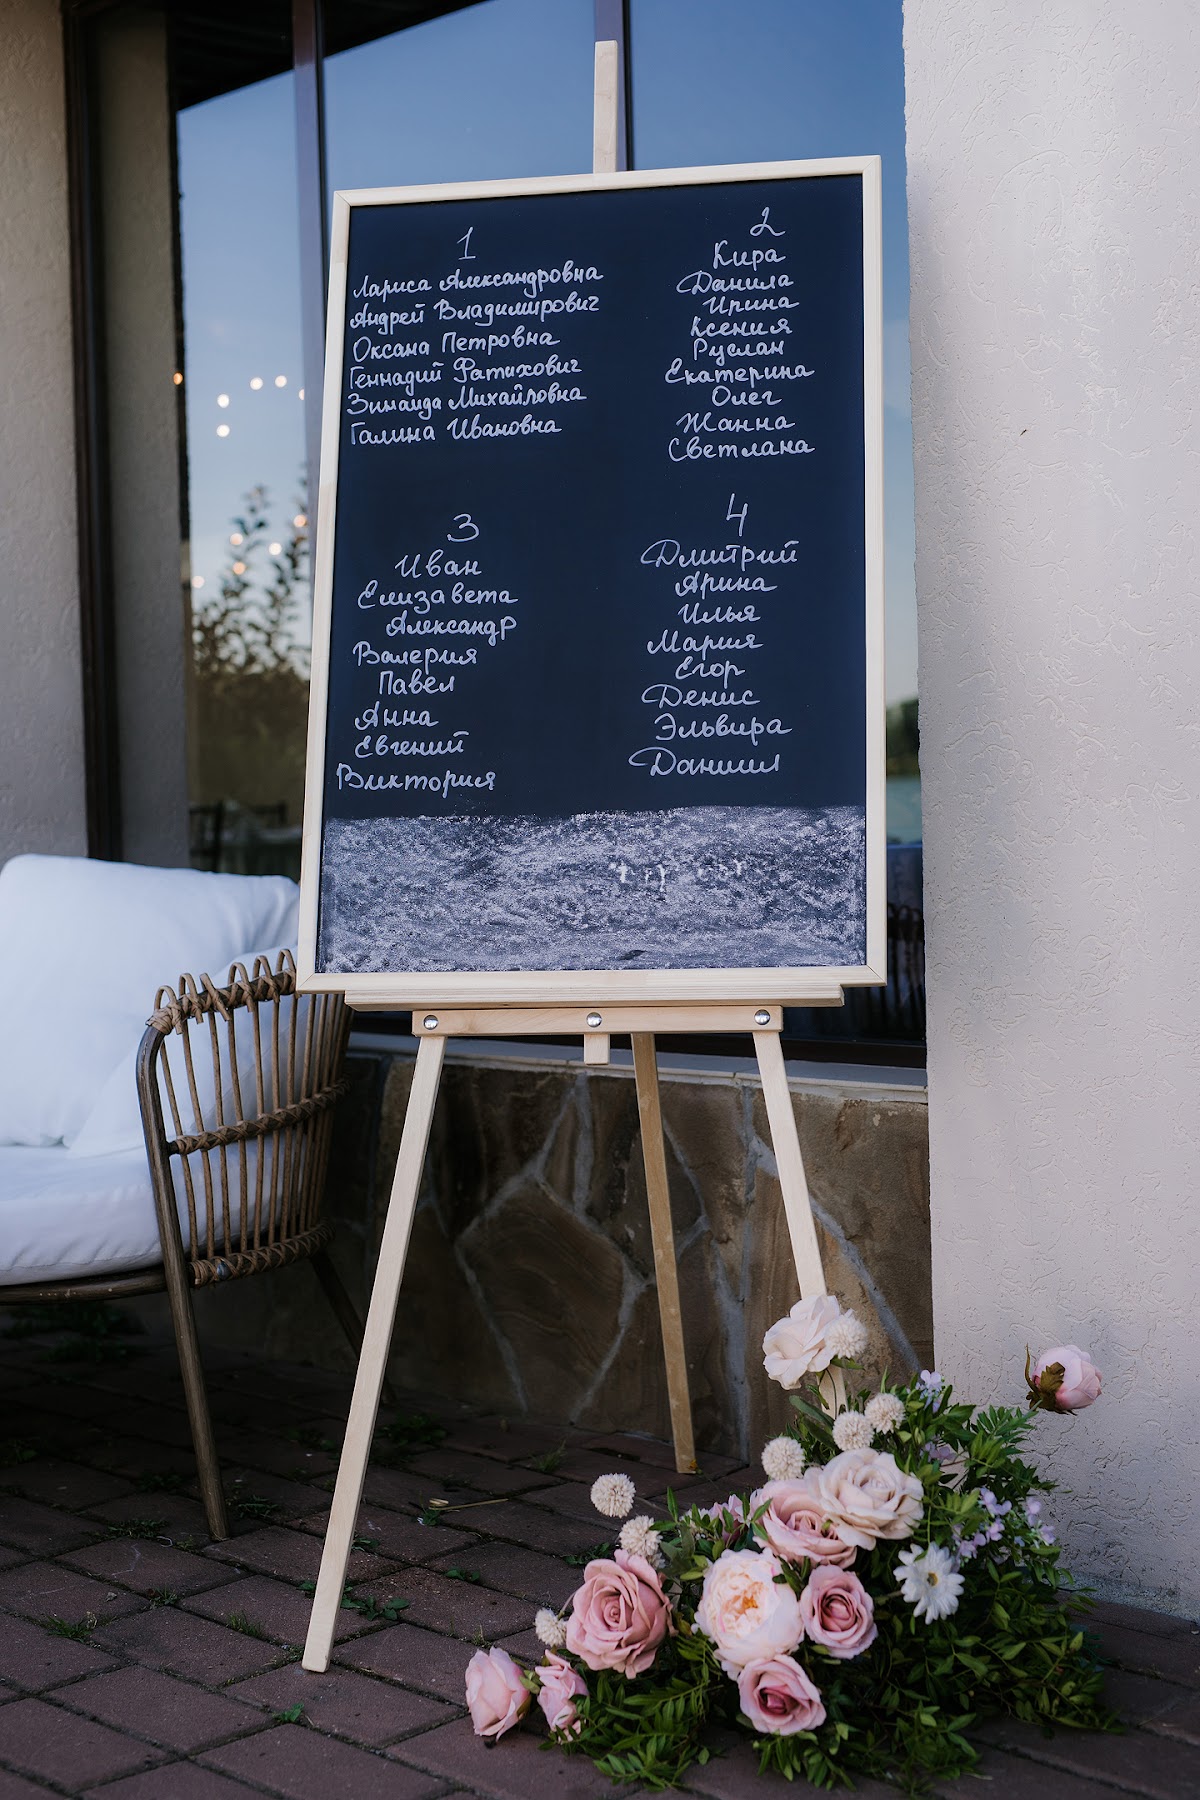 1
Лариса Александровна
Андрей Владимирович
Оксана Петровна
Геннадий Фатихович
Зинаида Михайловна
Галина Ивановна
2
Кира
Данила
Ирина
Ксения
Руслан
Екатерина
Олег
Жанна
Светлана
3
Иван
Елизавета
Александр
Валерия
Павел
Анна
Евгений
Виктория
4
Дмитрий
Арина
Илья
Мария
Егор
Денис
Эльвира
Даниил